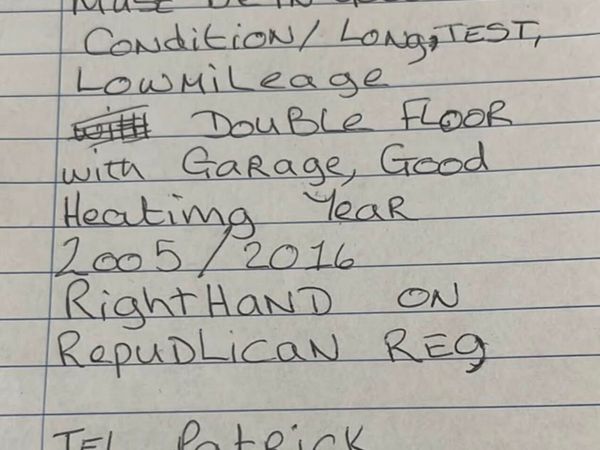 Must be in good
Condition/ Long, TEST,
Low Mileage
Double Floor
with Garage, Good
Heating Year
2005/2016
Right HAND ON
RepuDLicAN Reg
TEL Patrick